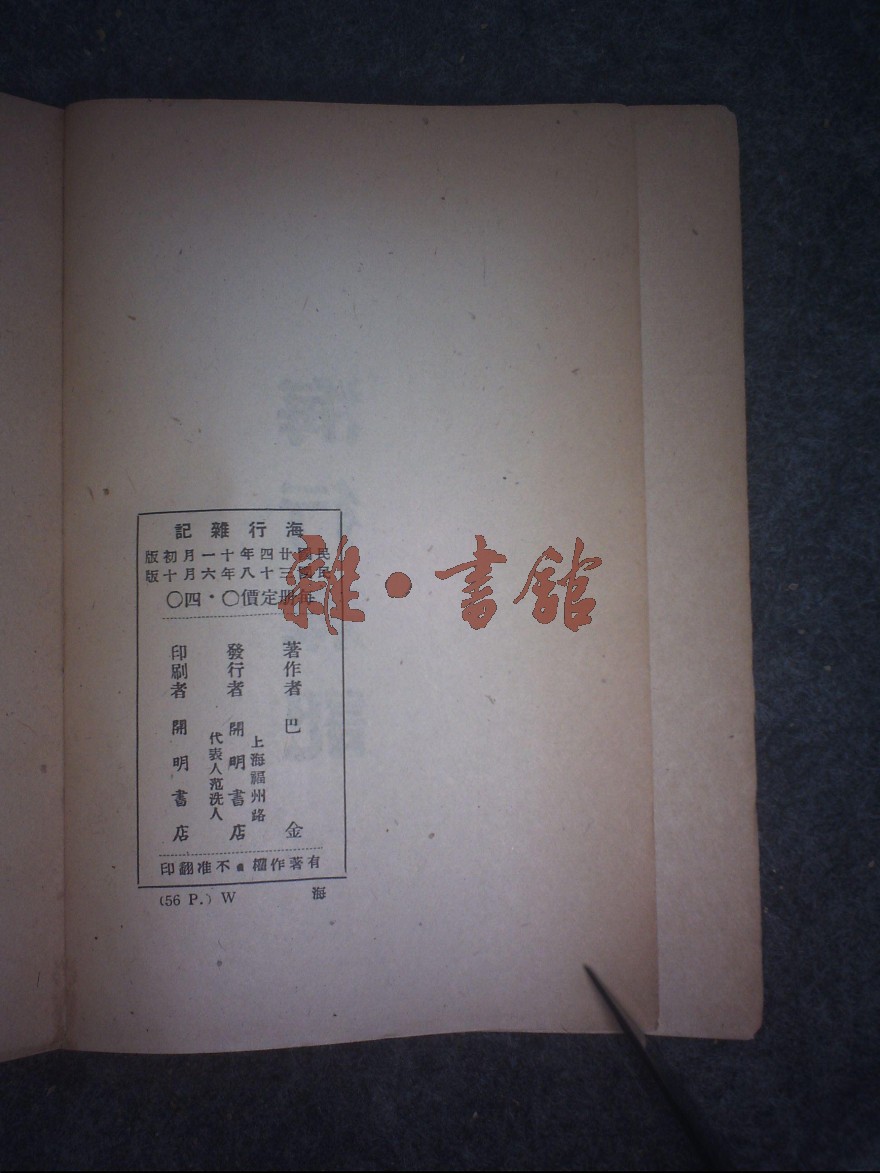 海行雜記
民國廿四年十一月初版
民國三十八年六月十版
每册定價〇·四〇
著作者 巴金
上海福州路
發行者 開明書店
代表人范洗人
印刷者 開明書店
有著作權 不准翻印
(56 P.) W 海
雜·書館